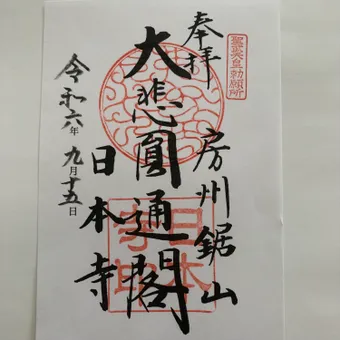 聖武天皇勅願所
奉拝
房州鋸山
大悲圓通閣
日本寺
令和六年九月十五日